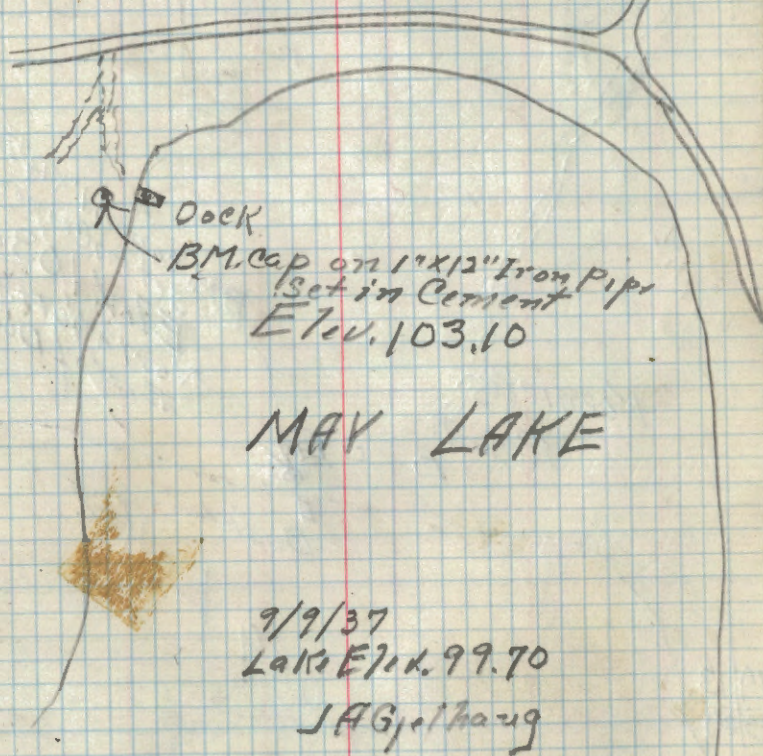 Dock
B.M. Cap on 1"x12" Iron Pipe
Set in Cement
Elev. 103.10
MAY LAKE
9/9/37
Lake Elev. 99.70
JAGjelhaug